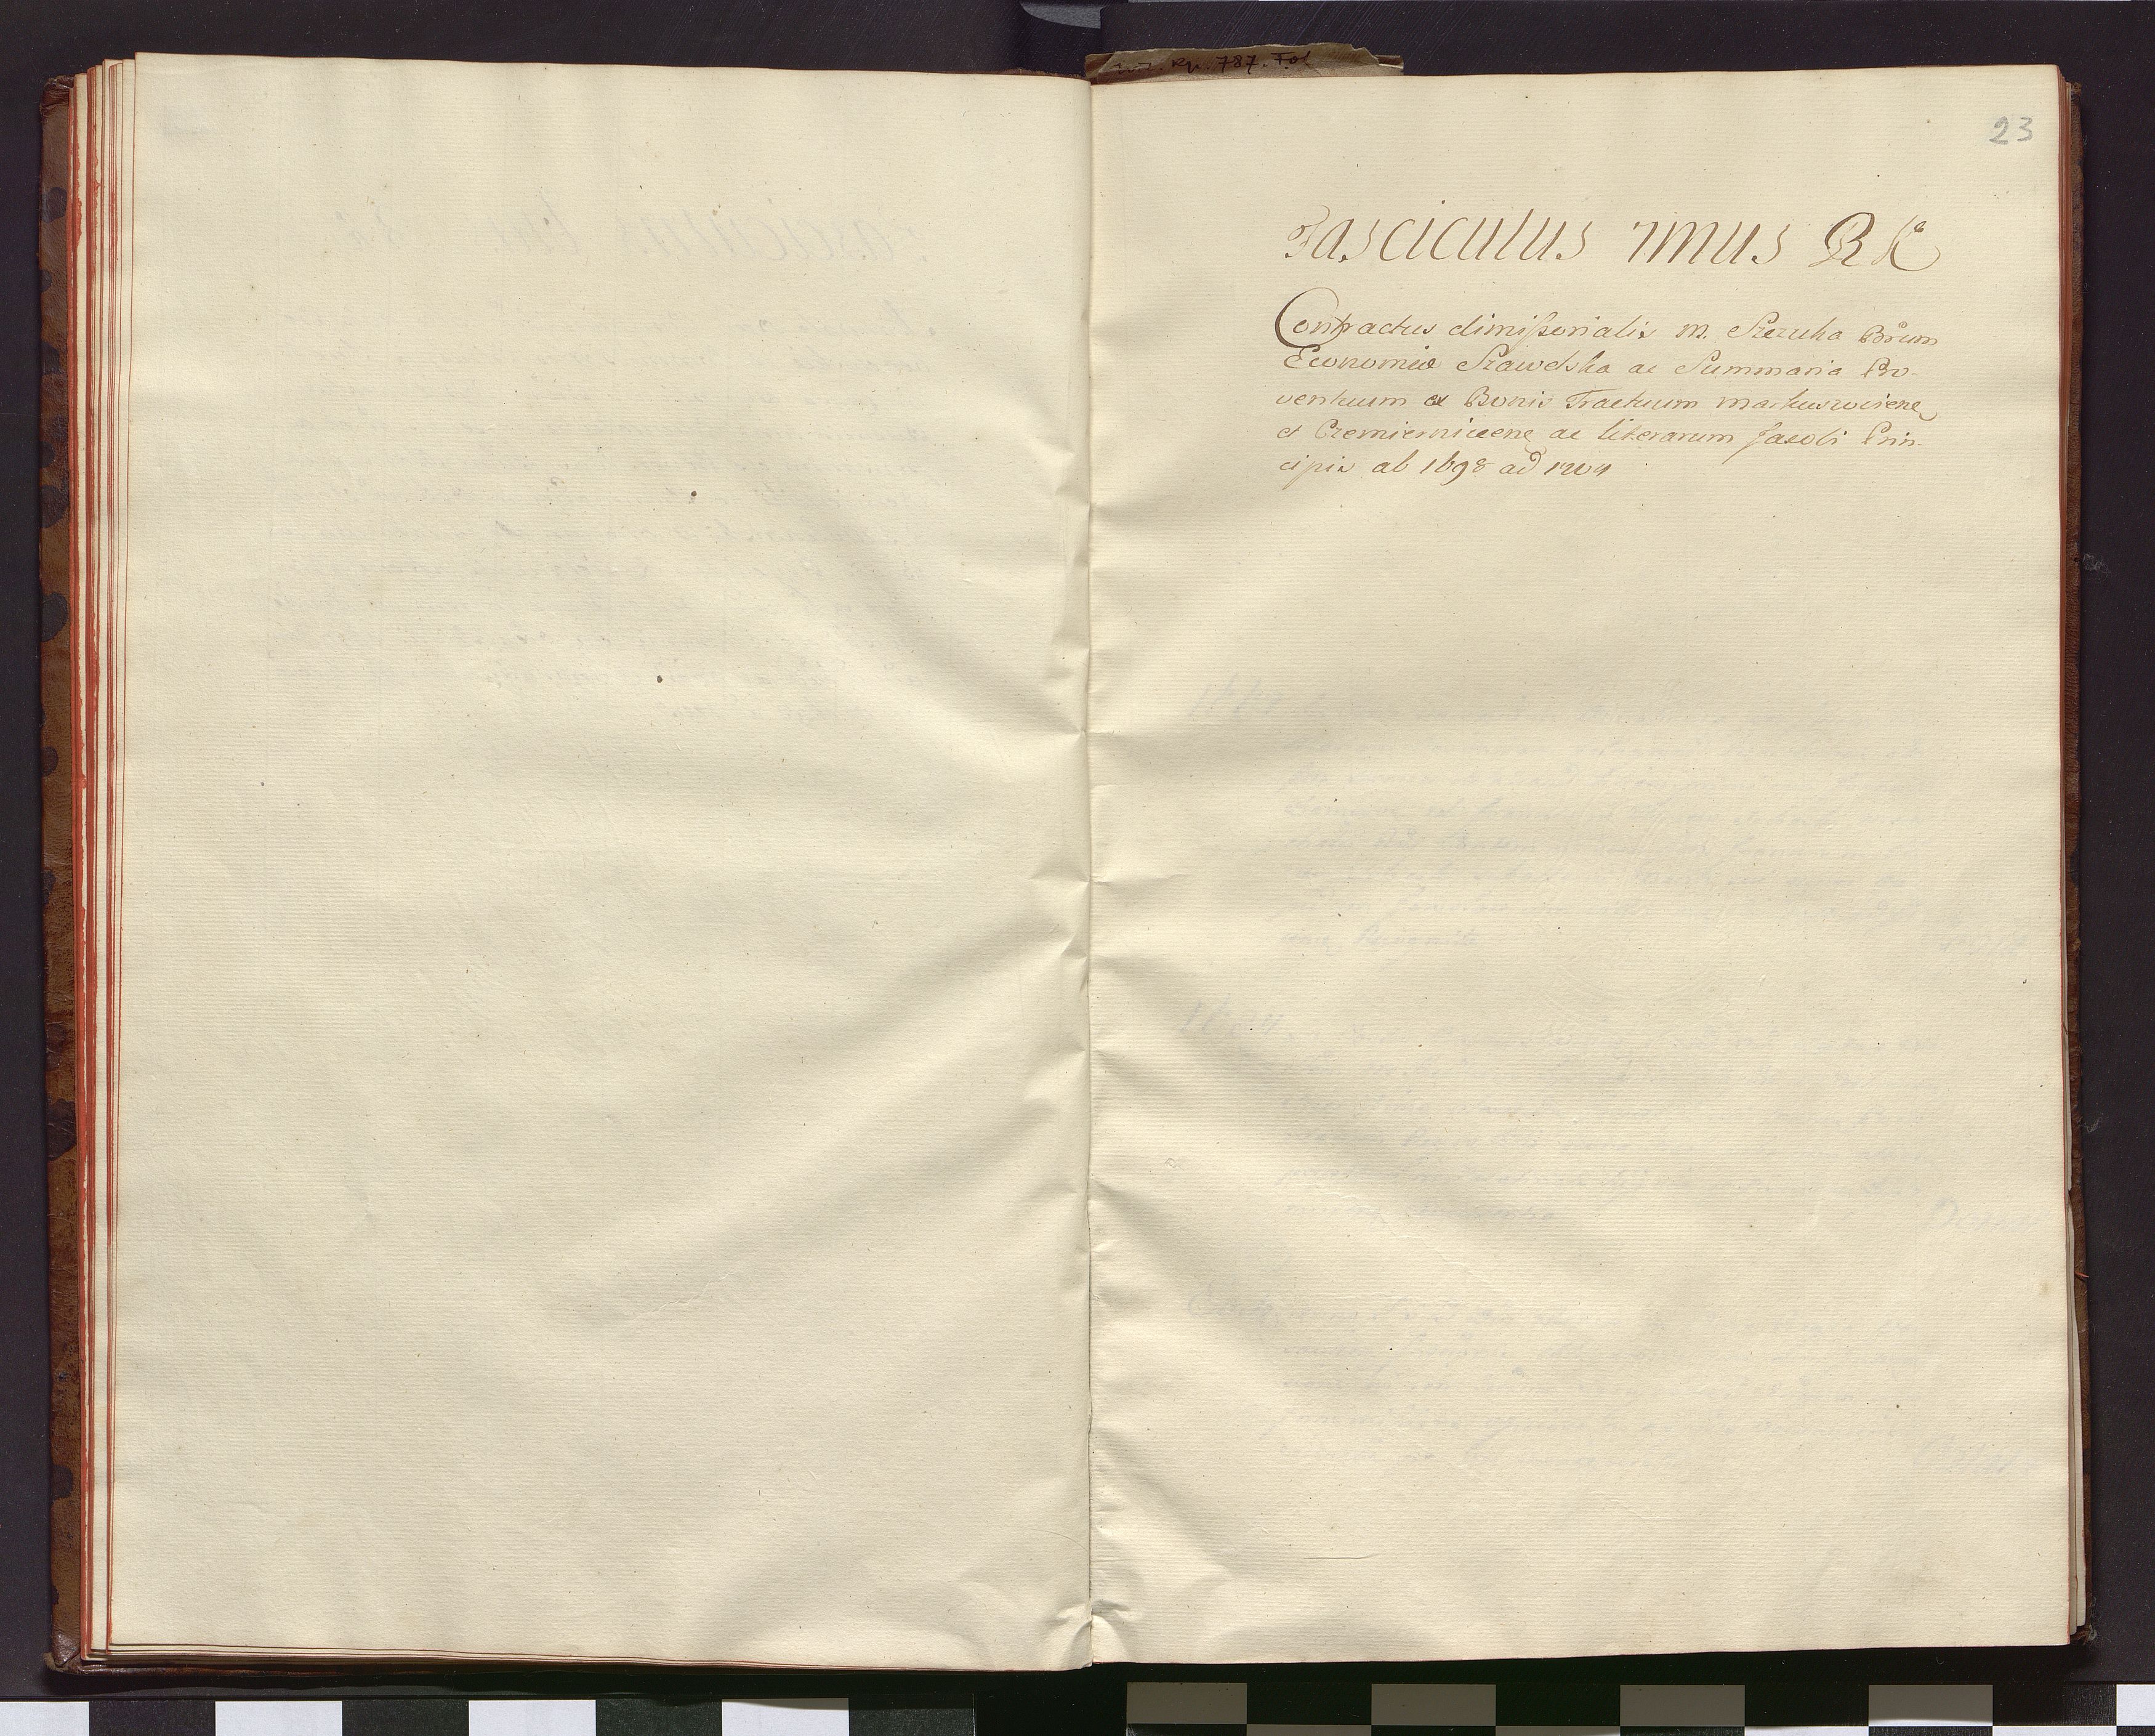 787. Fol
23
Fasciculus 7mus R K
Contractus dimissorialis m. Szczuka Bõrum
Economiæ Szawelska ac Summaria Pro-
ventuum ex Bonis Tractuum matuszovien
et Czemiernicen ac literarum Jacobi Prin-
cipis ab 1698 ad 1704